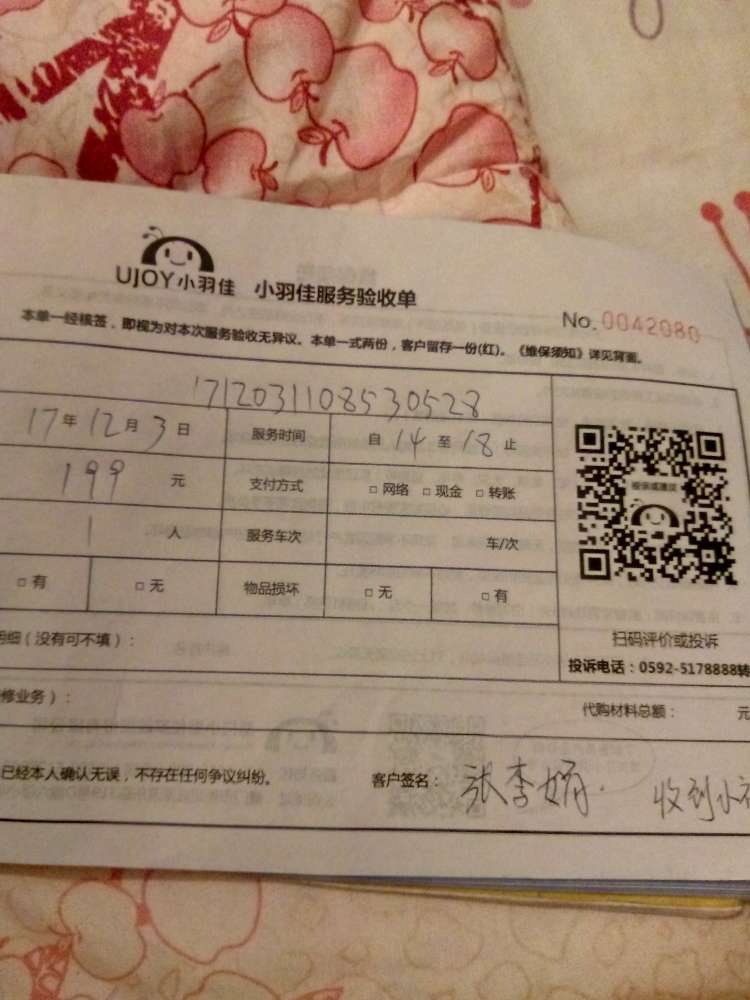 UJOY小羽佳 小羽佳服务验收单
No.0042080
本单一经核签，即视为对本次服务验收无异议。本单一式两份，客户留存一份(红)。《维保须知》详见背面。
1712031108530528
17年12月3日 服务时间 自14至18止
199 元 支付方式 □网络 □现金 □转账
1 人 服务车次 车/次
□有 □无 物品损坏 □无 □有
投保或建议
扫码评价或投诉
明细（没有可不填）：
投诉电话：0592-5178888转
修业务）：
代购材料总额： 元
已经本人确认无误，不存在任何争议纠纷。 客户签名：张李娟. 收到小